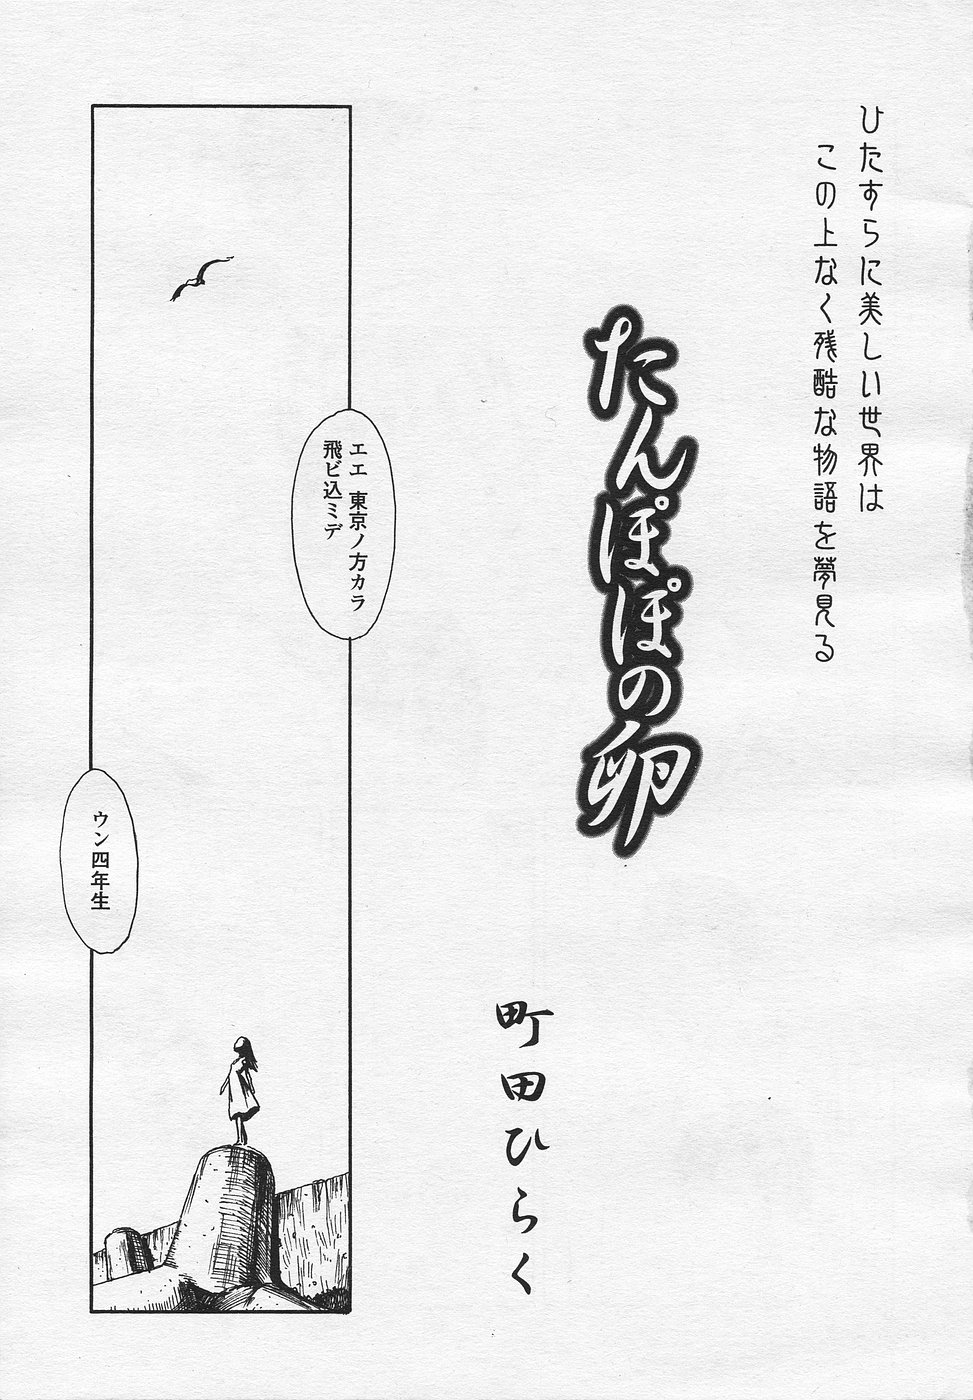 ひたすらに美しい世界は
この上なく残酷な物語を夢見る
たんぽぽの卵
町田ひらく
エエ 東京ノ方カラ
飛ビ込ミデ
ウン四年生